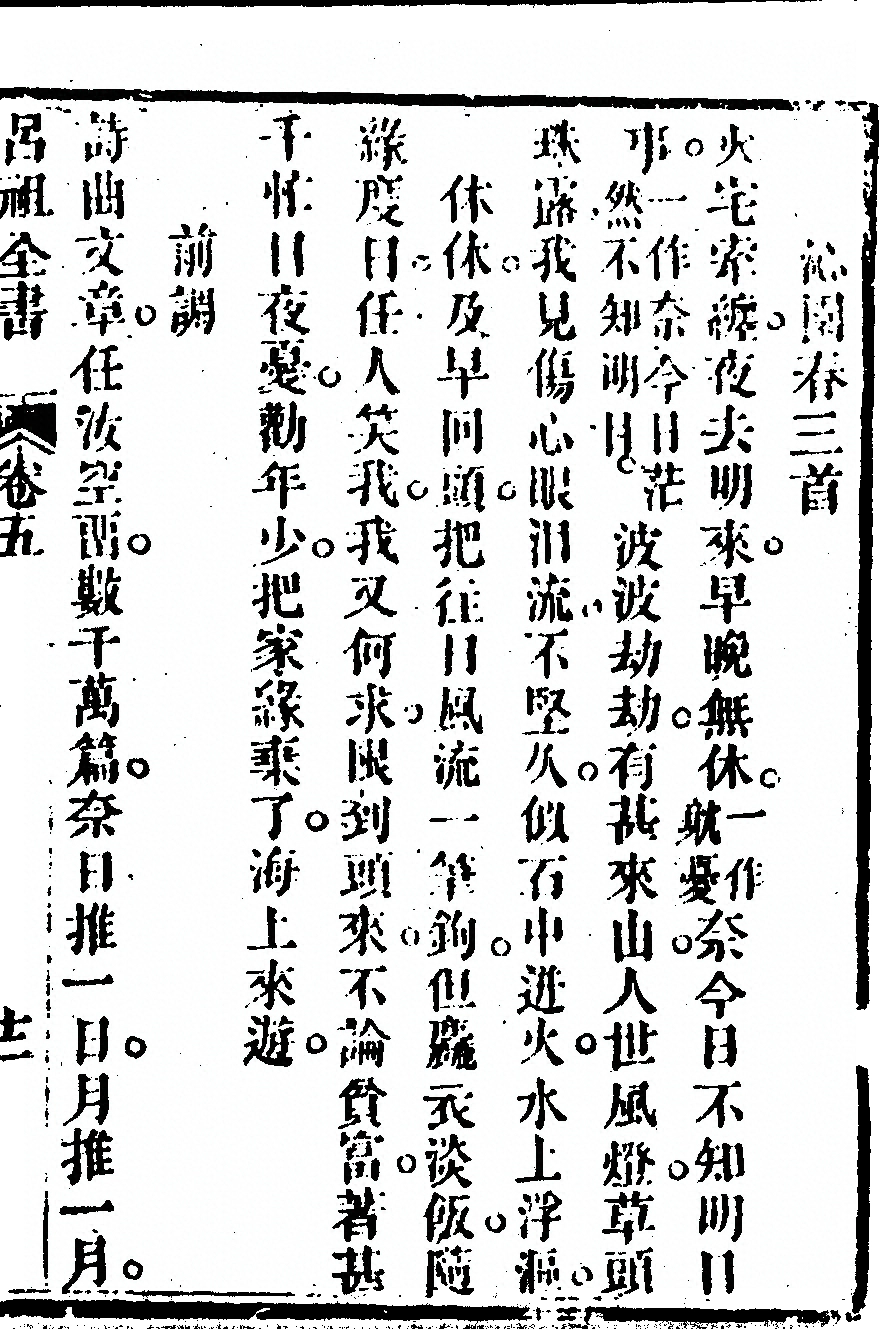 沁園春三首
火宅牽纏。夜去明來。早晚無休。一作躭憂奈今日不知明日
事。一作奈今日茫然不知明日。波波劫劫。有甚來山。人世風燈。草頭
珠露。我見傷心眼淚流。不堅久。似石中迸火。水上浮漚。
休休。及早回頭。把往日風流一筆鉤。但麤衣淡飯。隨
緣度日。任人笑我。我又何求。限到頭來。不論貧富。著甚
干忙日夜憂。勸年少。把家緣棄了。海上來遊。
前調
詩曲文章。任汝空留。數千萬篇。奈日推一日。月推一月。
呂祖全書 卷五 十二